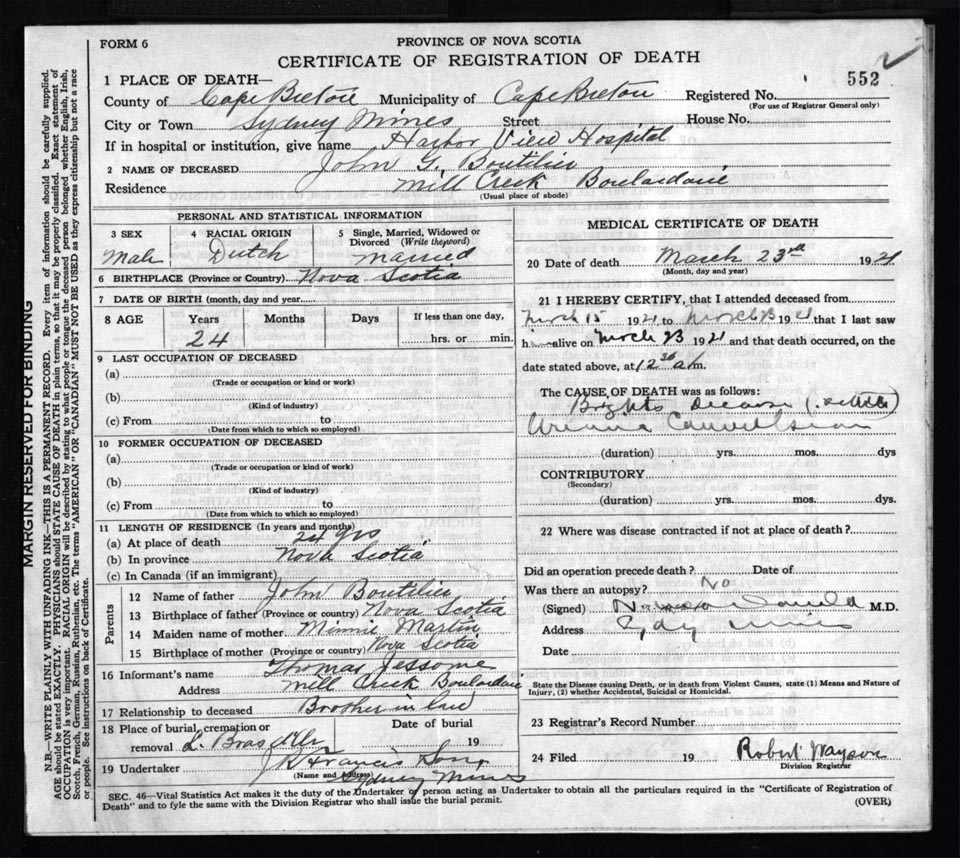 FORM 6
PROVINCE OF NOVA SCOTIA
CERTIFICATE OF REGISTRATION OF DEATH
552
1 PLACE OF DEATH—
County of Cape Breton Municipality of Cape Breton Registered No.
(For use of Registrar General only)
City or Town Sydney Mines Street House No.
If in hospital or institution, give name Harbor View Hospital
2 NAME OF DECEASED John G. Boutilier
Residence Mill Creek Boulardarie
(Usual place of abode)
PERSONAL AND STATISTICAL INFORMATION
3 SEX 4 RACIAL ORIGIN 5 Single, Married, Widowed or Divorced (Write the word)
Male Dutch married
6 BIRTHPLACE (Province or Country) Nova Scotia
7 DATE OF BIRTH (month, day and year)
8 AGE Years Months Days If less than one day,
24 hrs. or min.
9 LAST OCCUPATION OF DECEASED
(a)
(Trade or occupation or kind or work)
(b)
(Kind of industry)
(c) From to
(Date from which to which so employed)
10 FORMER OCCUPATION OF DECEASED
(a)
(Trade or occupation or kind of work)
(b)
(Kind of industry)
(c) From to
(Date from which to which so employed)
11 LENGTH OF RESIDENCE (In years and months)
(a) At place of death 24 yrs
(b) In province Nova Scotia
(c) In Canada (if an immigrant)
Parents
12 Name of father John Boutilier
13 Birthplace of father (Province or country) Nova Scotia
14 Maiden name of mother Minnie Martin
15 Birthplace of mother (Province or country) Nova Scotia
16 Informant's name Thomas Jessome
Address Mill Creek Boulardarie
17 Relationship to deceased Brother in law
18 Place of burial, cremation or Date of burial
removal L. Bras d'Or 19
19 Undertaker J R Francis Sons
(Name and Address) Sydney Mines
MEDICAL CERTIFICATE OF DEATH
20 Date of death March 23rd 1921
(Month, day and year)
21 I HEREBY CERTIFY, that I attended deceased from
March 15 1921 to March 23 1921 that I last saw
h alive on March 23 1921 and that death occurred, on the
date stated above, at 12 30 a m.
The CAUSE OF DEATH was as follows:
Brights Disease
Uremia Convulsions
(duration) yrs. mos. dys
CONTRIBUTORY
(Secondary)
(duration) yrs. mos. dys.
22 Where was disease contracted if not at place of death?
Did an operation precede death? Date of
Was there an autopsy? No
(Signed) M.D.
Address Sydney Mines
Date
State the Disease causing Death, or in death from Violent Causes, state (1) Means and Nature of
Injury, (2) whether Accidental, Suicidal or Homicidal.
23 Registrar's Record Number
24 Filed 19 Robert Wayson
Division Registrar
SEC. 46—Vital Statistics Act makes it the duty of the Undertaker or person acting as Undertaker to obtain all the particulars required in the "Certificate of Registration of
Death" and to fyle the same with the Division Registrar who shall issue the burial permit.
(OVER)
MARGIN RESERVED FOR BINDING
N.B.—WRITE PLAINLY WITH UNFADING INK—THIS IS A PERMANENT RECORD. Every item of information should be carefully supplied.
AGE should be stated EXACTLY. PHYSICIANS should STATE CAUSE OF DEATH in plain terms, so that it may be properly classified. Exact statement of
OCCUPATION is very important. RACIAL ORIGIN will be described by stating to what people or tongue the deceased person belonged whether English, Irish,
Scotch, French, German, Russian, Ruthenian, etc. The terms "AMERICAN" OR "CANADIAN" MUST NOT BE USED as they express citizenship but not a race
or people. See instructions on back of Certificate.